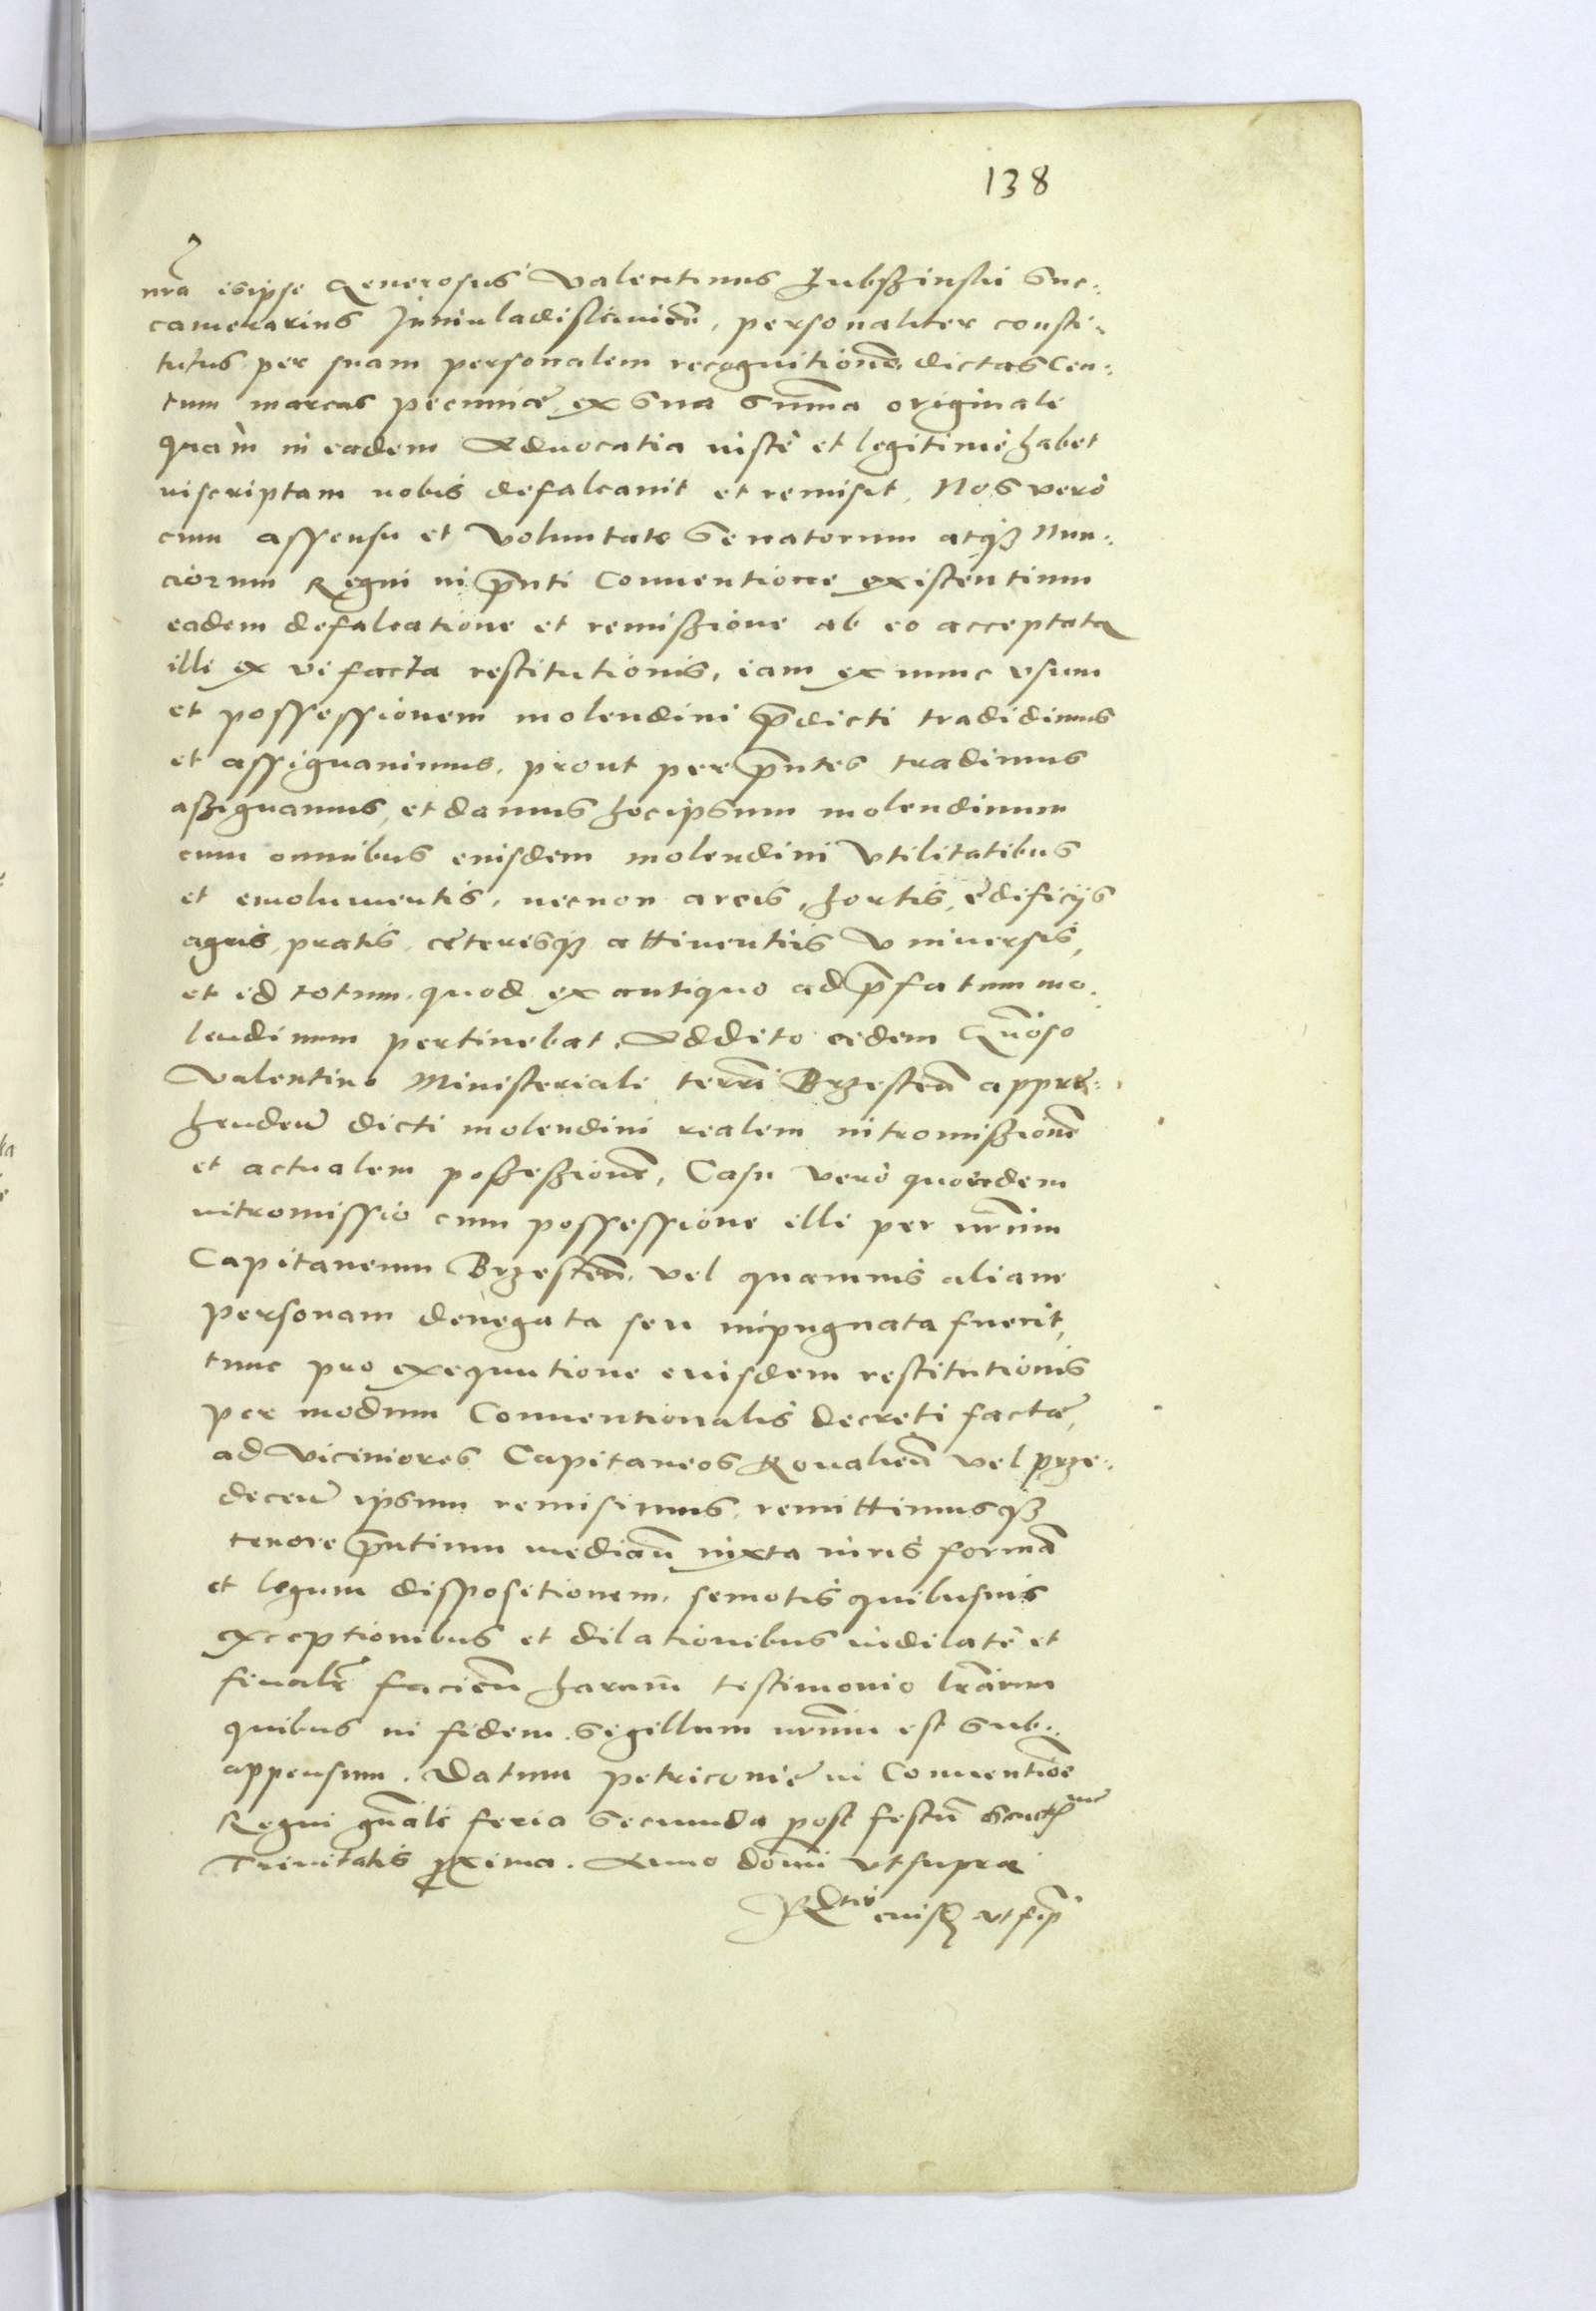 138
nr̃a isipse Generosus Valentinus Jubszinski Suc-
camerarius Junivladislavień, personaliter consti-
tutus per suam personalem recognitionē dictas Cen-
tum marcas pecuniæ ex sua sum̃a originali
quam in eadem Advocatia iuste et legitime habet
inscriptam nobis defalcavit et remisit, Nos vero
cum assensu et voluntate Senatorum atq3 Nun-
ciorum Regni in p̃nti Conventione existentium
eadem defalcatione et remissione ab eo acceptata
illi ex vi facta restitutionis, iam ex nunc usum
et possessionem molendini p̃dicti tradidimus
et assignavimus, prout per p̃ntes tradimus
assignamus, et damus hocipsum molendinum
cum omnibus eiusdem molendini utilitatibus
et emolumentis, necnon areis, hortis, ędificijs
agris, pratis, cęterisq3 attinentiis universis,
et id totum, quod ex antiquo ad p̃fatum mo-
lendinum pertinebat, Addito eidem Gñoso
Valentino Ministeriali terrę Brzesteñ appre-
henden̄ dicti molendini realem intromissionē
et actualem possessionē, Casu vero quo eidem
intromissio cum possessione illi per nr̃um
Capitaneum Brzesteñ, vel quamvis aliam
personam denegata seu impugnata fuerit,
tunc pro exequutione eiusdem restitutionis
per modum Conventionalis decreti factæ,
ad viciniores Capitaneos Kovalieñ vel prze-
deceñ ipsum remisimus, remittimusq3
tenore p̃ntium mediañ iuxta iuris formã
et legum dispositionem, semotis quibusvis
exceptionibus et dilationibus indilate et
finalr̃ facień harum̃ testimonio lr̃arum
quibus in fidem sigillum nr̃um est sub-
appensum. Datum Petricovię in Conventiõe
Regni gñali feria secunda post festũ Sanctissme
Trinitatis pxima. Anno domĩ ut supra
Rltio eiusd ut sup